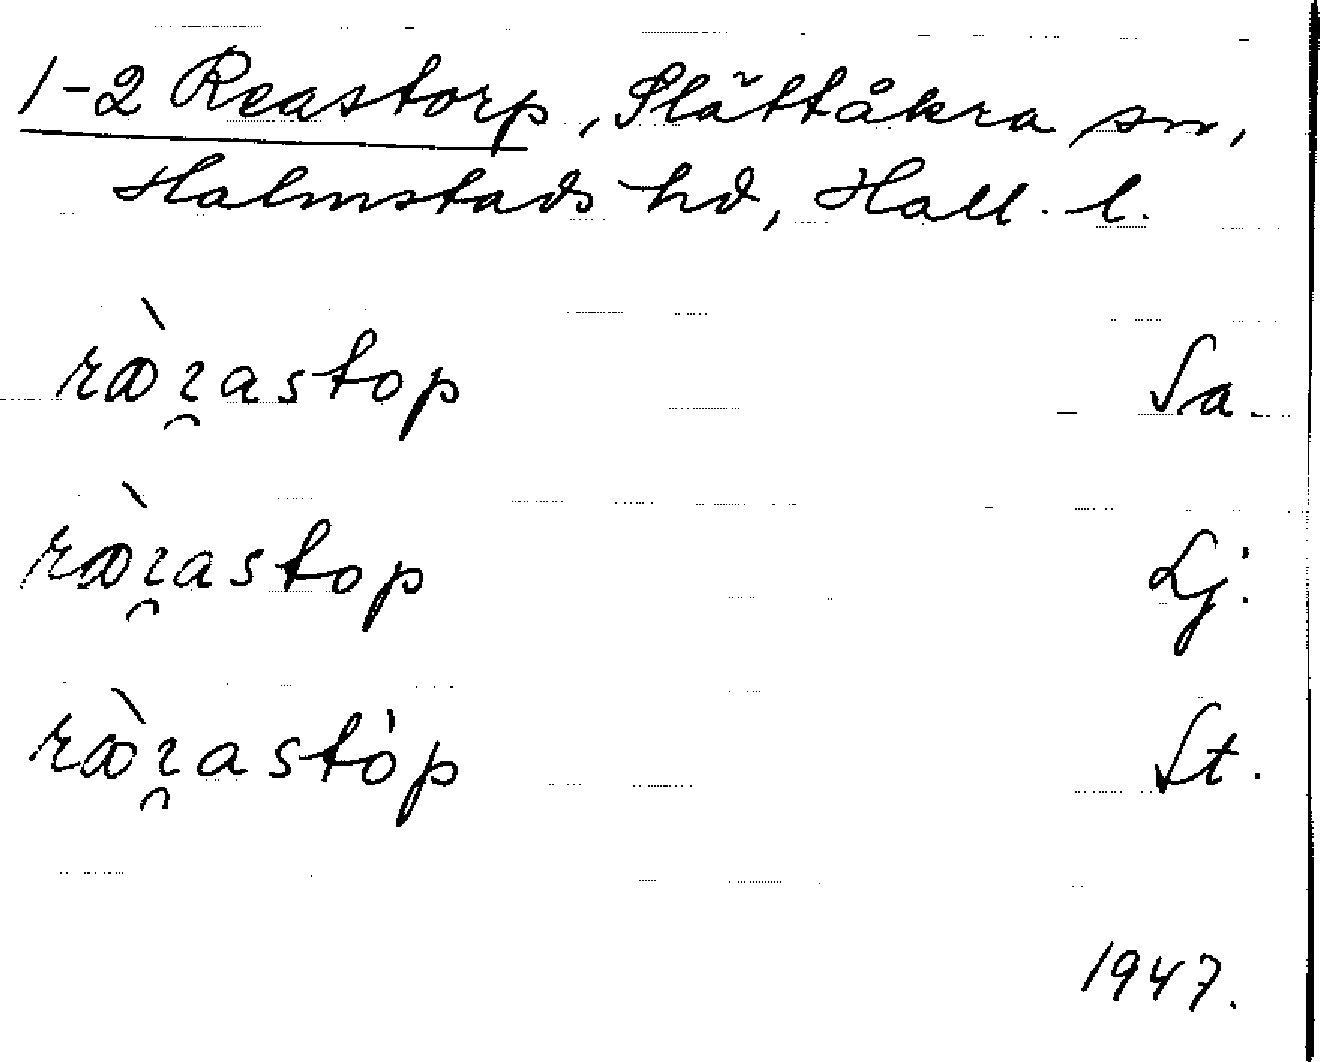 1-2 Reastorp, Slättåkra sn,
Halmstads hd, Hall. l.
rœ̀ɿ̯astop Sa.
rœ̀ɿ̯astop Lj.
rœ̀ɿ̯astóp St.
1947.